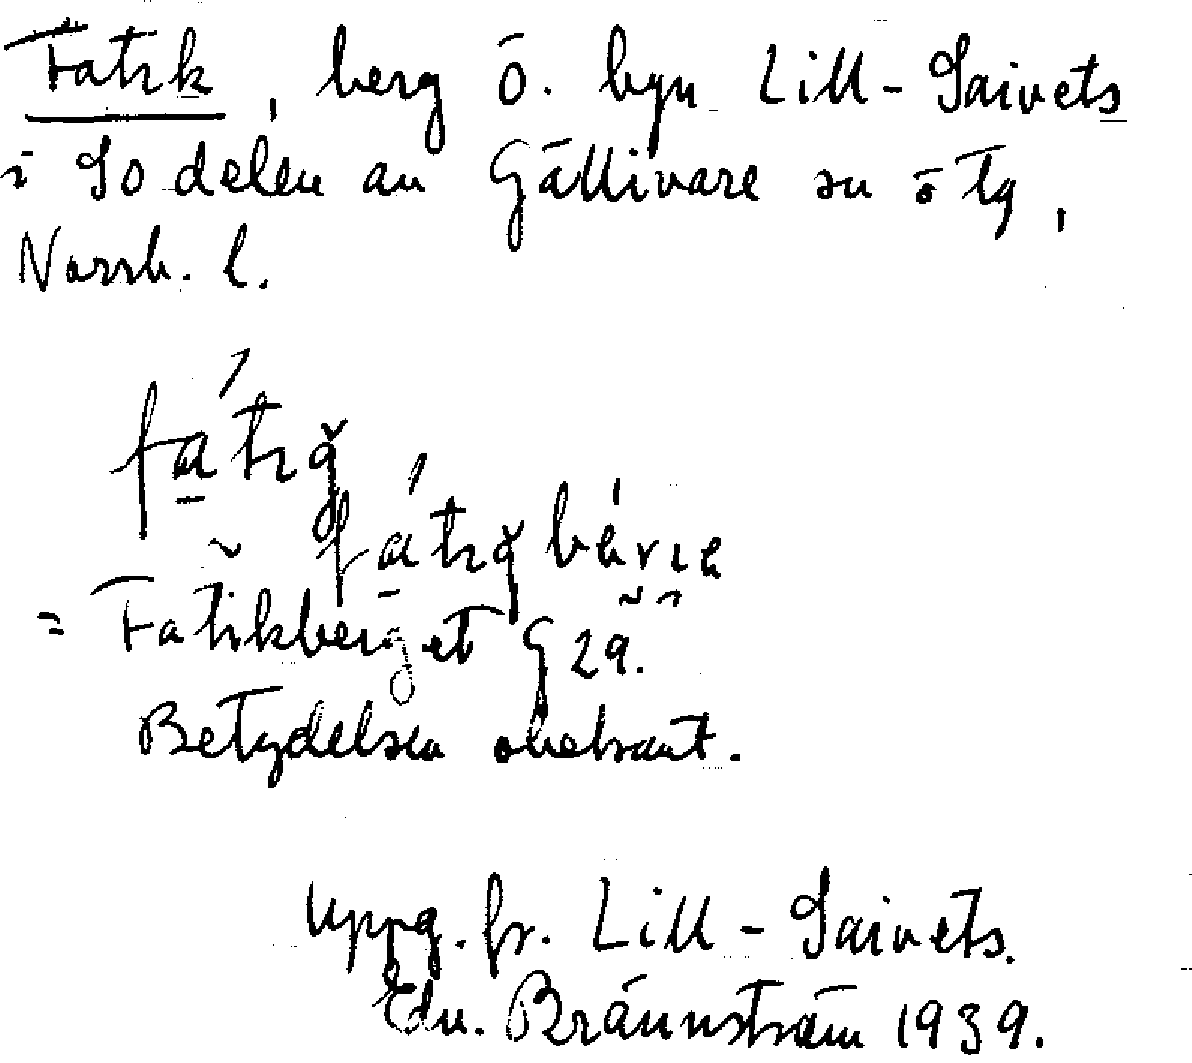 Fatik, berg ö. byn Lill-Saivets
i So delen av Gällivare sn o tg,
Norrb. l.
fátig
fátig bérie
= Fatikberget G 29.
Betydelsen obekant.
Uppg. fr. Lill-Saivets.
Edv. Brännström 1939.